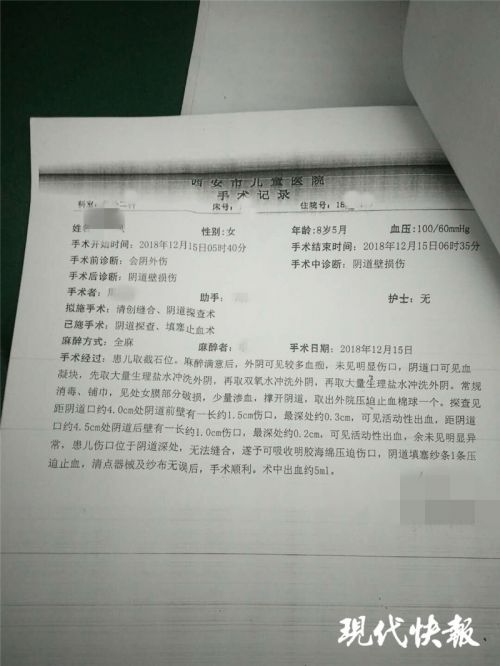 西安市儿童医院
手术记录
科室: 床号: 住院号:18
姓 性别:女 年龄:8岁5月 血压:100/60mmHg
手术开始时间: 2018年12月15日05时40分 手术结束时间: 2018年12月15日06时35分
手术前诊断: 会阴外伤 手术中诊断: 阴道壁损伤
手术后诊断: 阴道壁损伤
手术者: 助手: 护士: 无
拟施手术: 清创缝合、阴道探查术
已施手术: 阴道探查、填塞止血术
麻醉方式: 全麻 麻醉者: 手术日期: 2018年12月15日
手术经过: 患儿取截石位。麻醉满意后, 外阴可见较多血痂, 未见明显伤口, 阴道口可见血
凝块, 先取大量生理盐水冲洗外阴, 再取双氧水冲洗外阴, 再取大量生理盐水冲洗外阴。常规
消毒、铺巾, 见处女膜部分破损, 少量渗血, 撑开阴道, 取出外院压迫止血棉球一个。探查见
距阴道口约4.0cm处阴道前壁有一长约1.5cm伤口, 最深处约0.3cm, 可见活动性出血, 距阴道
口约4.5cm处阴道后壁有一长约1.0cm伤口, 最深处约0.2cm, 可见活动性出血, 余未见明显异
常, 患儿伤口位于阴道深处, 无法缝合, 遂予可吸收明胶海绵压迫伤口, 阴道填塞纱条1条压
迫止血, 清点器械及纱布无误后, 手术顺利。术中出血约5ml。
现代快报